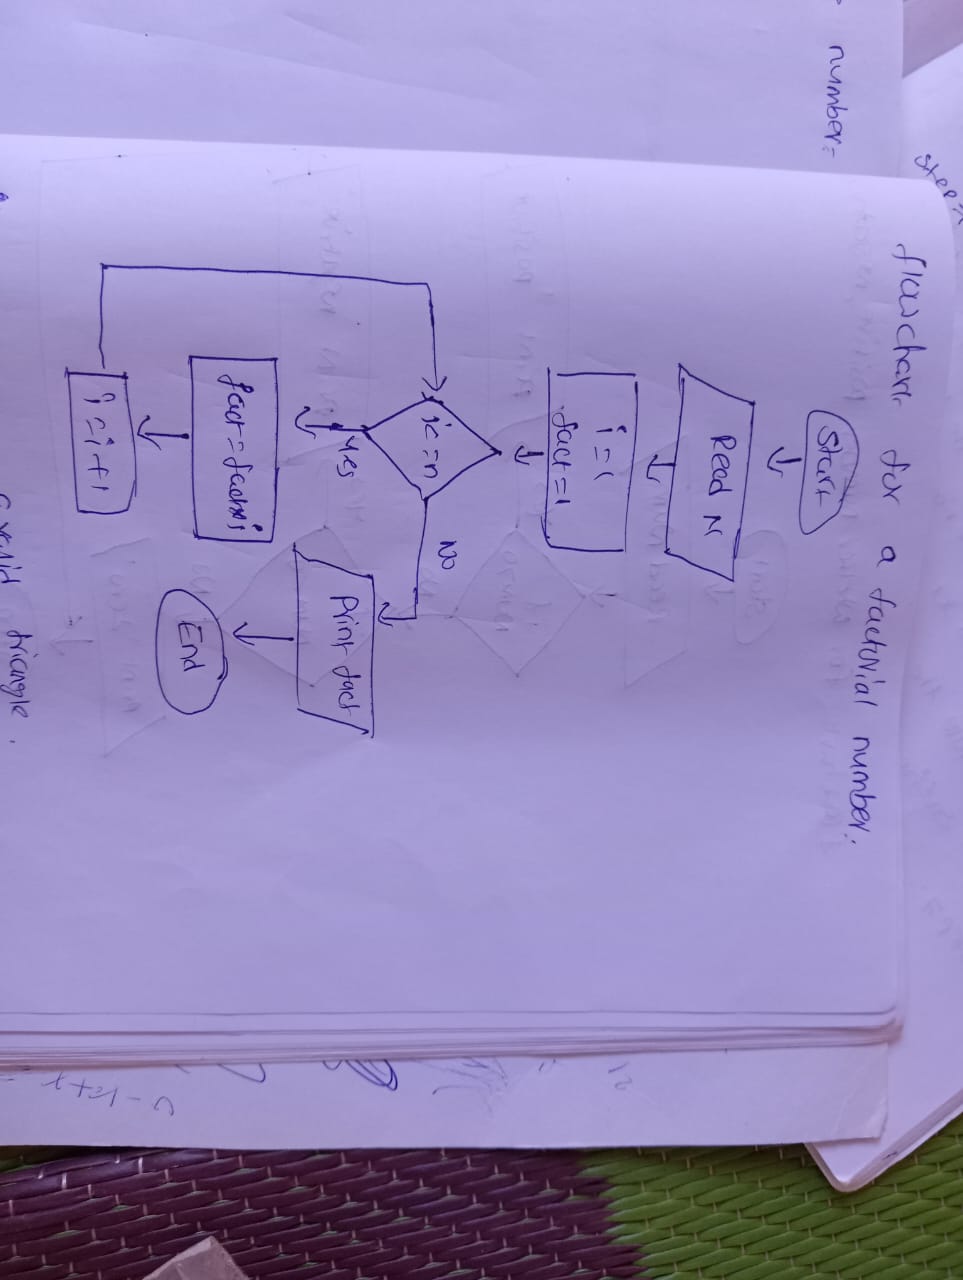 number:
flowchart for a factorial number.
Start
Read N
i=1
fact=1
i<=n
Yes
No
fact=fact*i
Print fact
i=i+1
End
triangle.